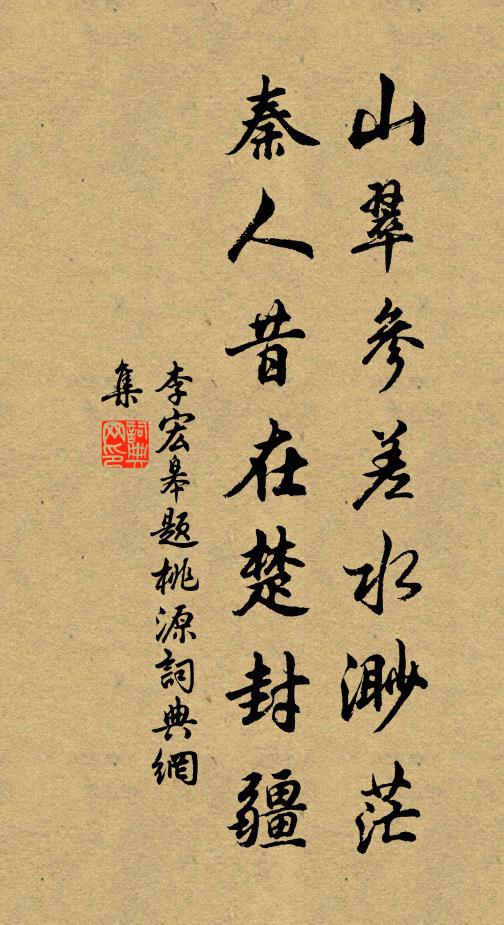 山翠參差水渺茫
秦人昔在楚封疆
李宏皋題桃源詞典網
集
詞典網印